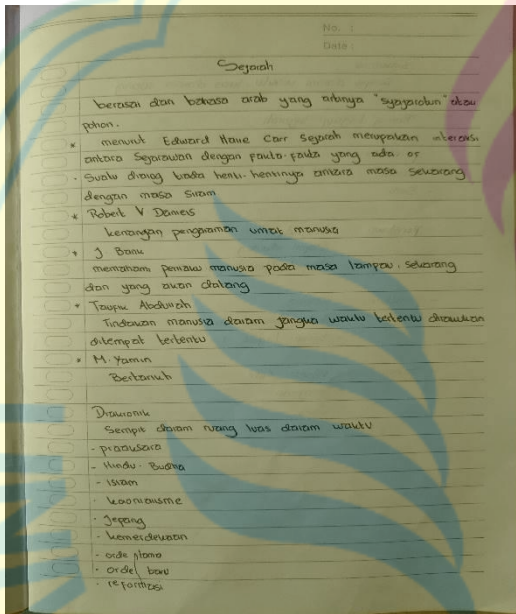 No. :
Date :
Sejarah
berasal dari bahasa arab yang artinya "syajarotun" atau
pohon.
* menurut Edward Hallet Carr Sejarah merupakan interaksi
antara Sejarawan dengan fakta-fakta yang ada. or
- Suatu dialog tiada henti-hentinya antara masa sekarang
dengan masa silam
* Robert V Daniels
kenangan pengalaman umat manusia
* J Bank
memahami perilaku manusia pada masa lampau, sekarang
dan yang akan datang
* Taufik Abdullah
Tindakan manusia dalam jangka waktu tertentu dilakukan
ditempat tertentu
* M. Yamin
Diakronik
Sempit dalam ruang luas dalam waktu
- praaksara
- Hindu - Budha
- islam
- kolonialisme
- Jepang
- kemerdekaan
- orde lama
- orde baru
- reformasi